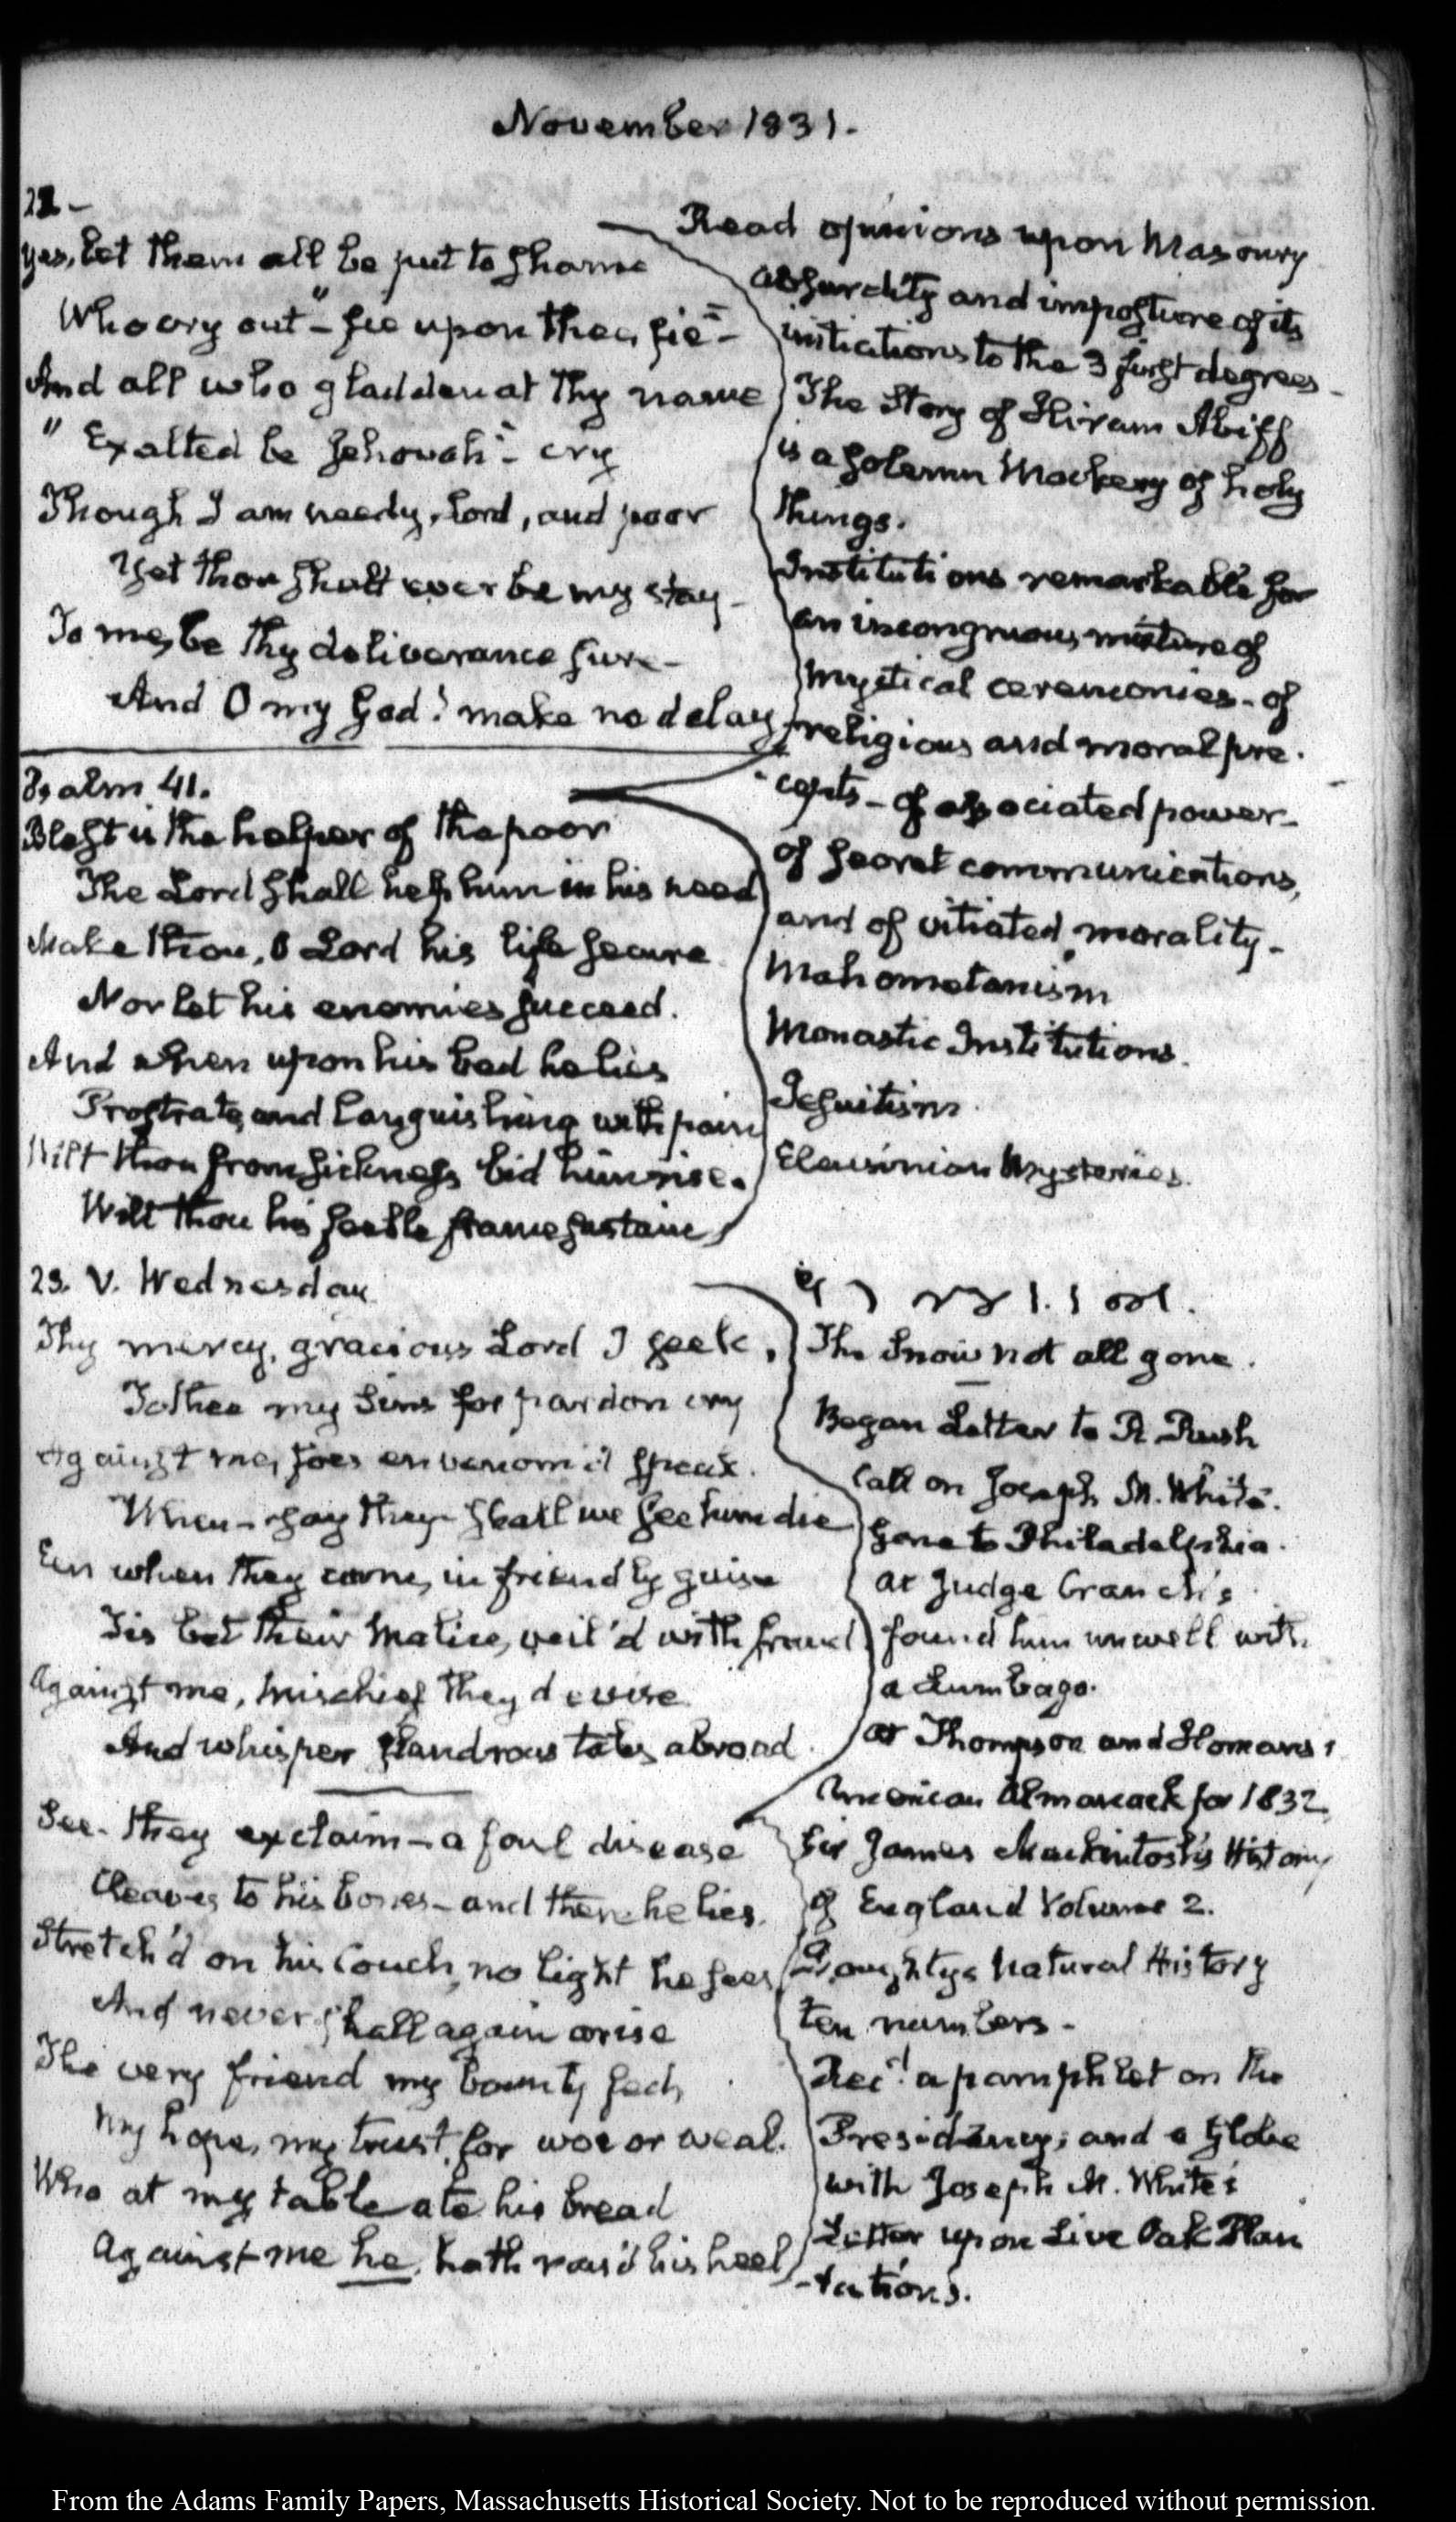 November 1831.
22 -
Yes, let them all be put to shame
Who cry out - "fie upon thee, fie" -
And all who gladden at thy name
"Exalted be Jehovah" - cry
Though I am needy, Lord, and poor
Yet thou shalt ever be my stay -
To me, be thy deliverance sure -
And O my God! make no delay.
Psalm 41.
Blest is the helper of the poor
The Lord shall help him in his need
Make thou, O Lord his life secure
Nor let his enemies succeed.
And when upon his bed he lies
Prostrate, and languishing with pain
Wilt thou from sickness bid him rise.
Wilt thou his feeble frame sustain
Read opinions upon Masonry
absurdity and imposture of its
initiations to the 3 first degrees -
The Story of Hiram Abiff
is a solemn Mockery of holy
things.
Institutions remarkable for
an incongruous mixture of
mystical ceremonies - of
religious and moral pre-
-cepts - of associated power -
of secret communications,
and of vitiated morality -
Mahometanism
Monastic Institutions.
Jesuitism.
Eleusinian Mysteries.
23. V. Wednesday
Thy mercy, gracious Lord I seek,
To thee my sins for pardon cry
Against me, foes envenom'd speak.
When - say they - shall we see him die
Een when they come, in friendly guise
Tis but their Malice, veil'd with fraud
Against me, mischief they devise
And whisper slandrous tales abroad.
See - they exclaim - a foul disease
Cleaves to his bones - and there he lies.
Stretch'd on his Couch, no light he sees
And never shall again arise
The very friend my bounty fed,
My hope, my trust, for woe or weal.
Who at my table ate his bread
Against me he, hath rais'd his heel
The Snow not all gone.
Began Letter to R. Rush
Call on Joseph M. White.
Gone to Philadelphia.
at Judge Cranch's
found him unwell with
a Lumbago.
at Thompson and Homans's
American Almanack for 1832
Sir James Mackintosh's History
of England Volume 2.
Doughty's Natural History
ten numbers -
Recd. a pamphlet on the
Presidency; and a Globe
with Joseph M. White's
Letter upon Live Oak Plan
-tations.
From the Adams Family Papers, Massachusetts Historical Society. Not to be reproduced without permission.